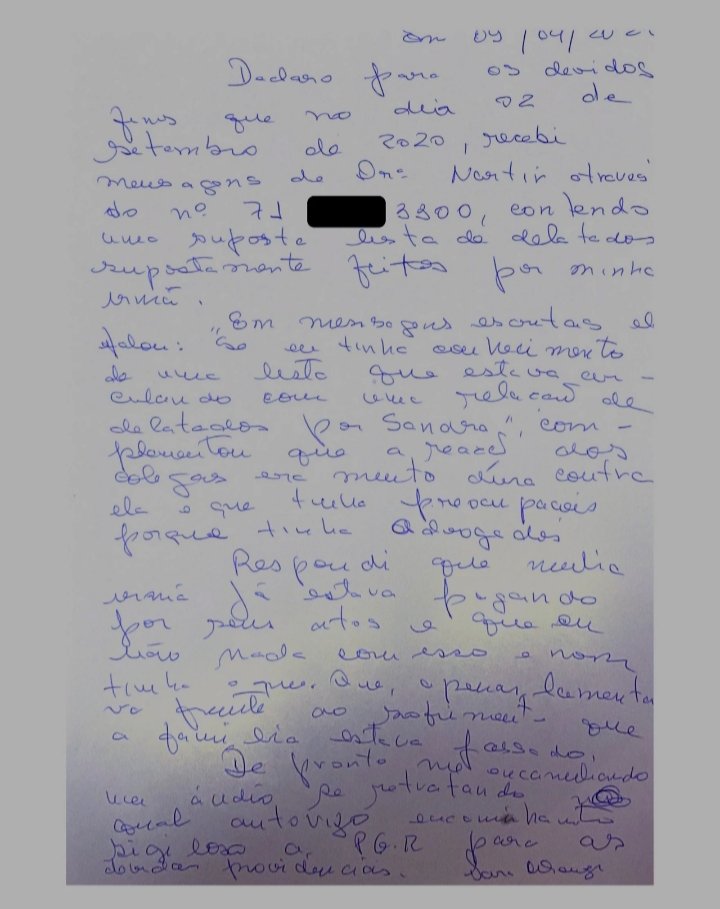 Em 09/04/
Declaro para os devidos
fins que no dia 02 de
setembro de 2020, recebi
mensagens de Dra. Nartir através
do nº 71 3300, contendo
uma suposta lista de delatados
supostamente feitos por minha
irmã.
"Em mensagens escritas el
falou: "Se eu tinha conhecimento
de uma lista que estava cir-
culando com uma relação de
delatados por Sandra", com-
plementou que a reação dos
colegas era muito dura contra
ela e que tinha preocupações
porque tinha Advogados
Respondi que minha
irmã já estava pagando
por seus atos e que eu
não nada com isso e nem
tinha o que. Que, apenas lamenta
va frente ao sofriment que
a família estava passado.
De pronto me
um áudio se retratando
qual autorizo
sigiloso a PGR para as
devidas providências.